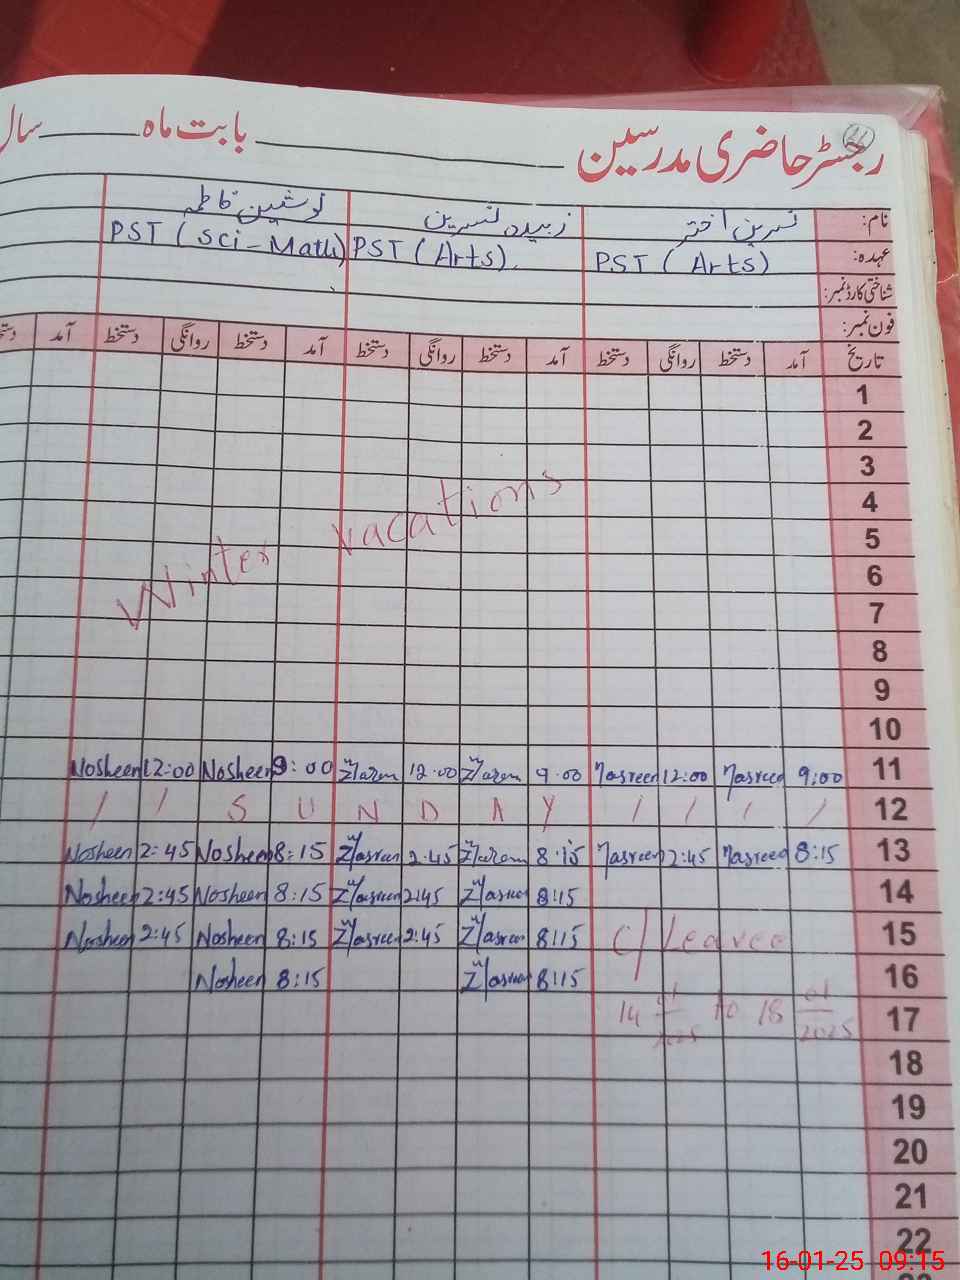 رجسٹر حاضری مدرسین ______ بابت ماہ ______ سال
نام: نسرین اختر زبیدہ نسرین نوشین فاطمہ
عہدہ: PST (Arts) PST (Arts). PST (Sci-Math)
شناختی کارڈ نمبر:
فون نمبر:
تاریخ آمد دستخط روانگی دستخط آمد دستخط روانگی دستخط آمد دستخط روانگی دستخط آمد
1
2
3
4
5
6
7
8
9
10
Winter vacations
Nosheen 12:00 Nosheen 9:00 12:00 9:00 Nasreen 12:00 Nasreen 9:00 11
/ / S U N D A Y / / / / 12
Nosheen 2:45 Nosheen 8:15 Z/Nasreen 2:45 8:15 Nasreen 2:45 Nasreen 8:15 13
Nosheen 2:45 Nosheen 8:15 Z/Nasreen 2:45 Z/Nasreen 8:15 14
Nosheen 2:45 Nosheen 8:15 Z/Nasreen 2:45 Z/Nasreen 8:15 C/Leavee 15
Nosheen 8:15 Z/Nasreen 8:15 16
14 01/2025 to 18 01/2025 17
18
19
20
21
22
16-01-25 09:15